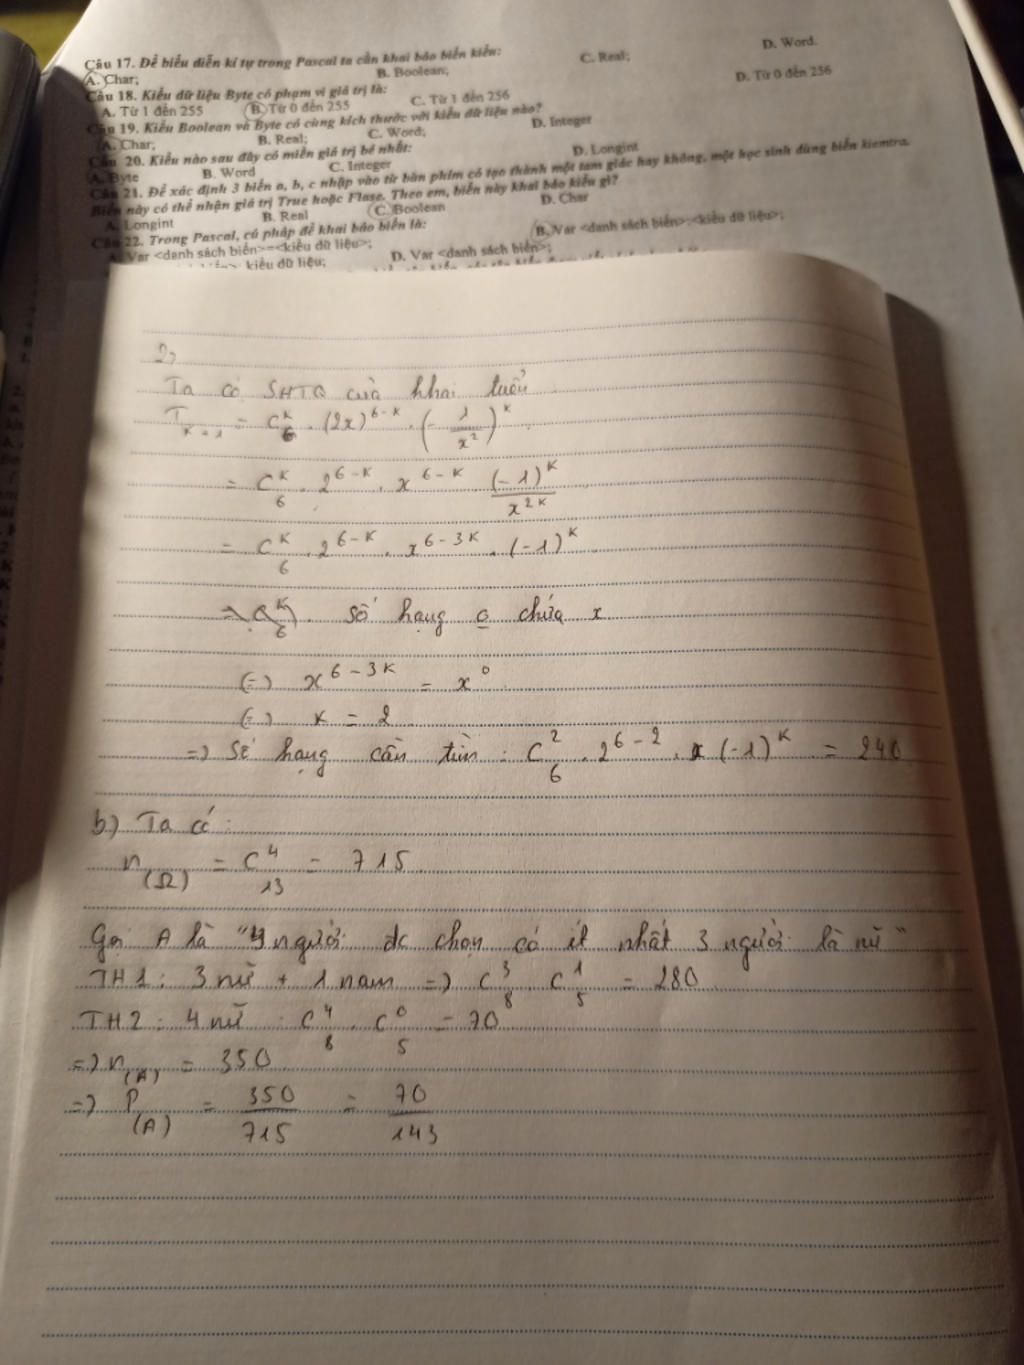 D. Word.
Câu 17. Để biểu diễn kí tự trong Pascal ta cần khai báo biến kiểu:
A. Char; B. Boolean; C. Real;
Câu 18. Kiểu dữ liệu Byte có phạm vi giá trị là: D. Từ 0 đến 256
A. Từ 1 đến 255 B. Từ 0 đến 255 C. Từ 1 đến 256
Câu 19. Kiểu Boolean và Byte có cùng kích thước với kiểu dữ liệu nào?
A. Char; B. Real; C. Word; D. Integer
Câu 20. Kiểu nào sau đây có miền giá trị bé nhất:
A. Byte B. Word C. Integer D. Longint
Câu 21. Để xác định 3 biến a, b, c nhập vào từ bàn phím có tạo thành một tam giác hay không, một học sinh dùng biến kiemtra.
Biến này có thể nhận giá trị True hoặc Flase. Theo em, biến này khai báo kiểu gì?
A. Longint B. Real C. Boolean D. Char
Câu 22. Trong Pascal, cú pháp để khai báo biến là: B. Var <danh sách biến>:<kiểu dữ liệu>;
A. Var <danh sách biến>=<kiểu dữ liệu>; D. Var <danh sách biến>;
kiểu dữ liệu;
2,
Ta có SHTQ của khai triển
T_{K+1} = C_6^K . (2x)^{6-K} . (-1/x^2)^K
= C_6^K . 2^{6-K} . x^{6-K} (-1)^K/x^{2K}
= C_6^K . 2^{6-K} . x^{6-3K} . (-1)^K
số hạng o chứa x
(=) x^{6-3K} = x^0
(=) K = 2
=) Số hạng cần tìm : C_6^2 . 2^{6-2} . x (-1)^K = 240
b) Ta có :
n_(Ω) = C_13^4 = 715
Gọi A là "4 người đc chọn có ít nhất 3 người là nữ"
TH1 : 3 nữ + 1 nam =) C_8^3 . C_5^1 = 280
TH2 : 4 nữ : C_8^4 . C_5^0 = 70
=) n_(A) = 350
=) P_(A) = 350/715 = 70/143